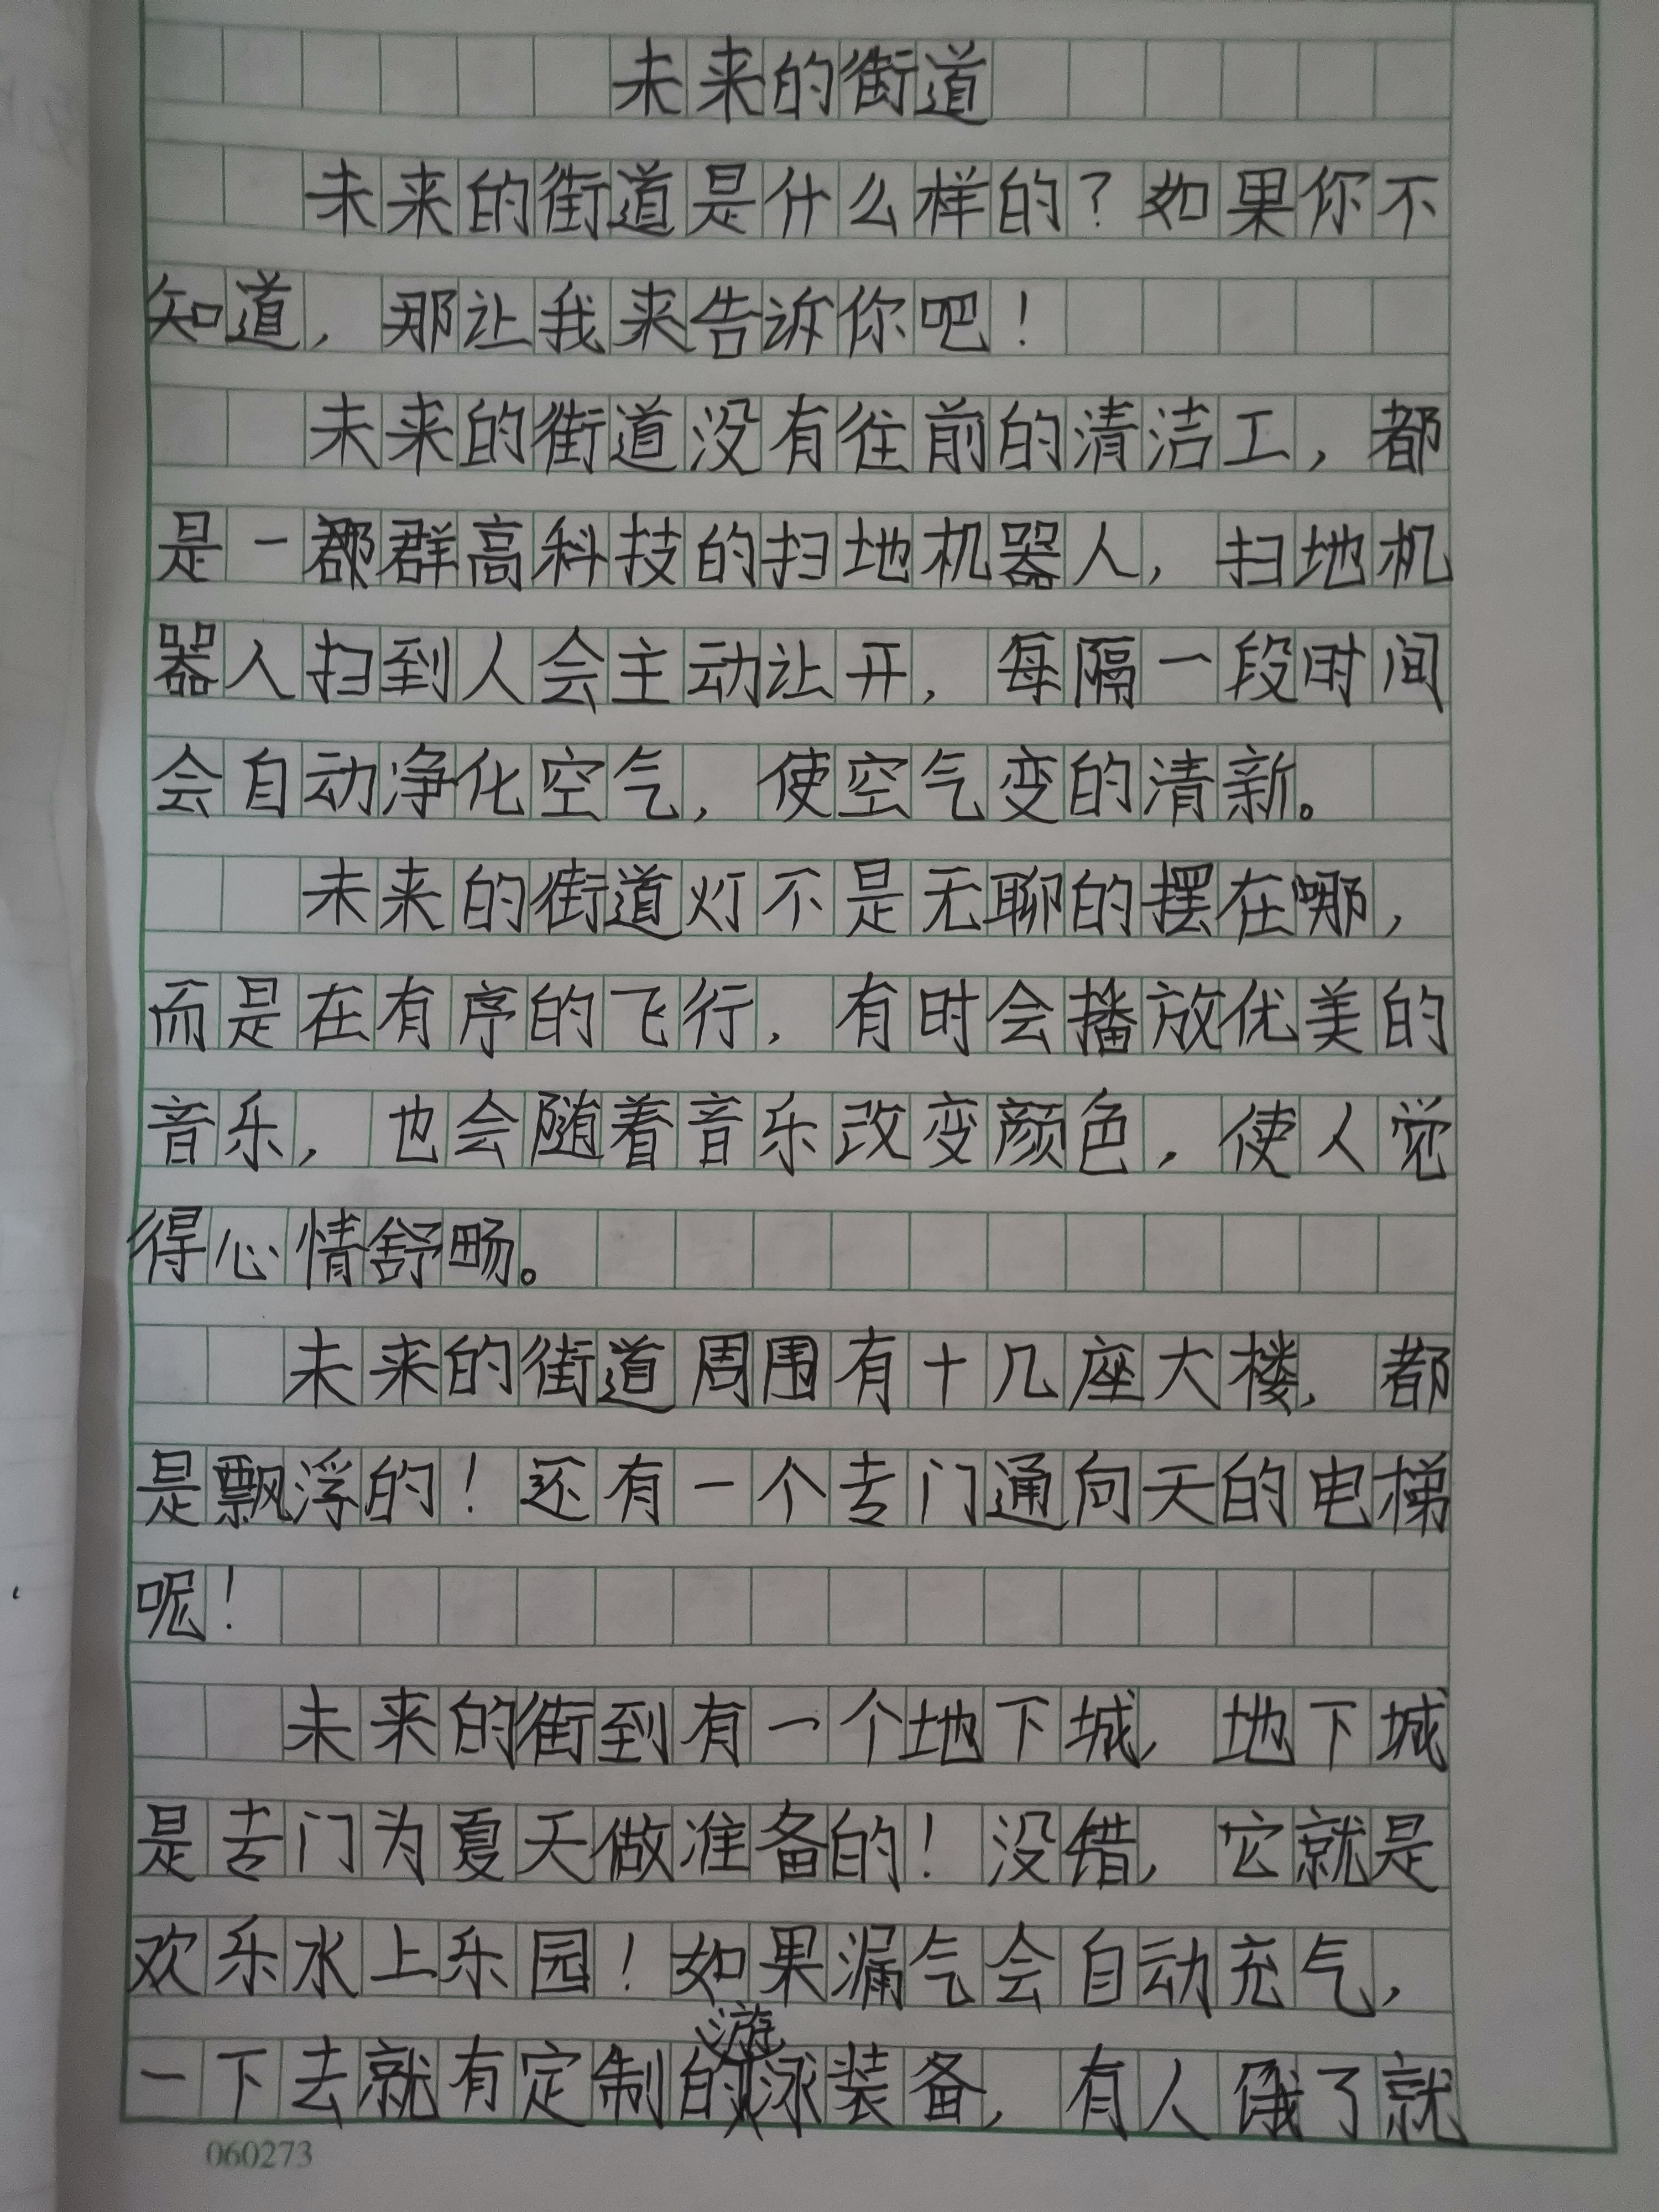 未来的街道
未来的街道是什么样的？如果你不
知道，那让我来告诉你吧！
未来的街道没有往前的清洁工，都
是一群高科技的扫地机器人，扫地机
器人扫到人会主动让开，每隔一段时间
会自动净化空气，使空气变的清新。
未来的街道灯不是无聊的摆在哪，
而是在有序的飞行，有时会播放优美的
音乐，也会随着音乐改变颜色，使人觉
得心情舒畅。
未来的街道周围有十几座大楼，都
是飘浮的！还有一个专门通向天的电梯
呢！
未来的街到有一个地下城，地下城
是专门为夏天做准备的！没错，它就是
欢乐水上乐园！如果漏气会自动充气，
一下去就有定制的游泳装备，有人饿了就
060273